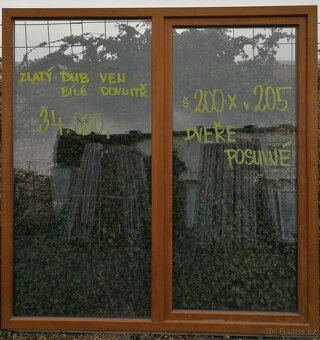 ZLATÝ DUB VEN
BÍLÉ DOVNITŘ
34 000,-
Š 200 X V. 205
DVEŘE
POSUVNÉ
@i Bazos.cz